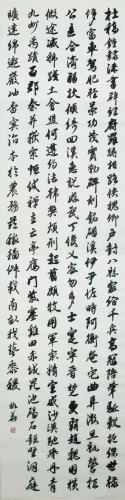 杜稿鍾隸漆書壁經府羅將相路俠槐卿戶封八縣家給千兵高冠陪輦驅轂振纓世祿
侈富車駕肥輕策功茂實勒碑刻銘磻溪伊尹佐時阿衡奄宅曲阜微旦孰營桓
公匡合濟弱扶傾綺回漢惠說感武丁俊乂密勿多士寔寧晉楚更霸趙魏困橫
假途滅虢踐土會盟何遵約法韓弊煩刑起翦頗牧用軍最精宣威沙漠馳譽丹青
九州禹跡百郡秦并嶽宗恆岱禪主云亭雁門紫塞雞田赤城昆池碣石鉅野洞庭
曠遠綿邈巖岫杳冥治本於農務茲稼穡俶載南畝我藝黍稷